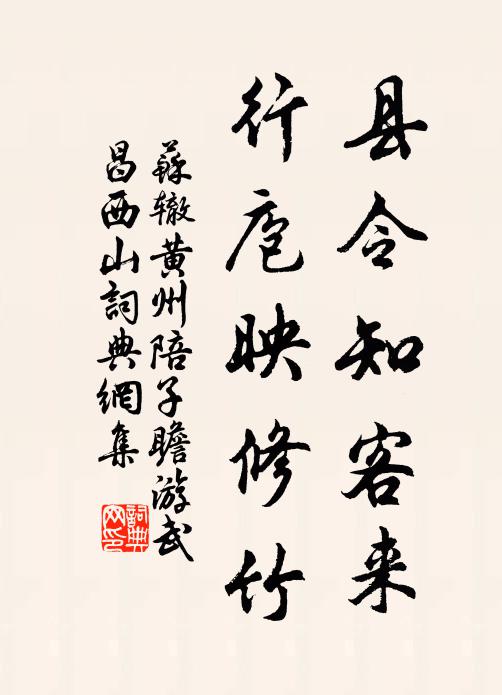 县令知客来
行庖映修竹
蘇辙黄州陪子瞻游武
昌西山詞典網集